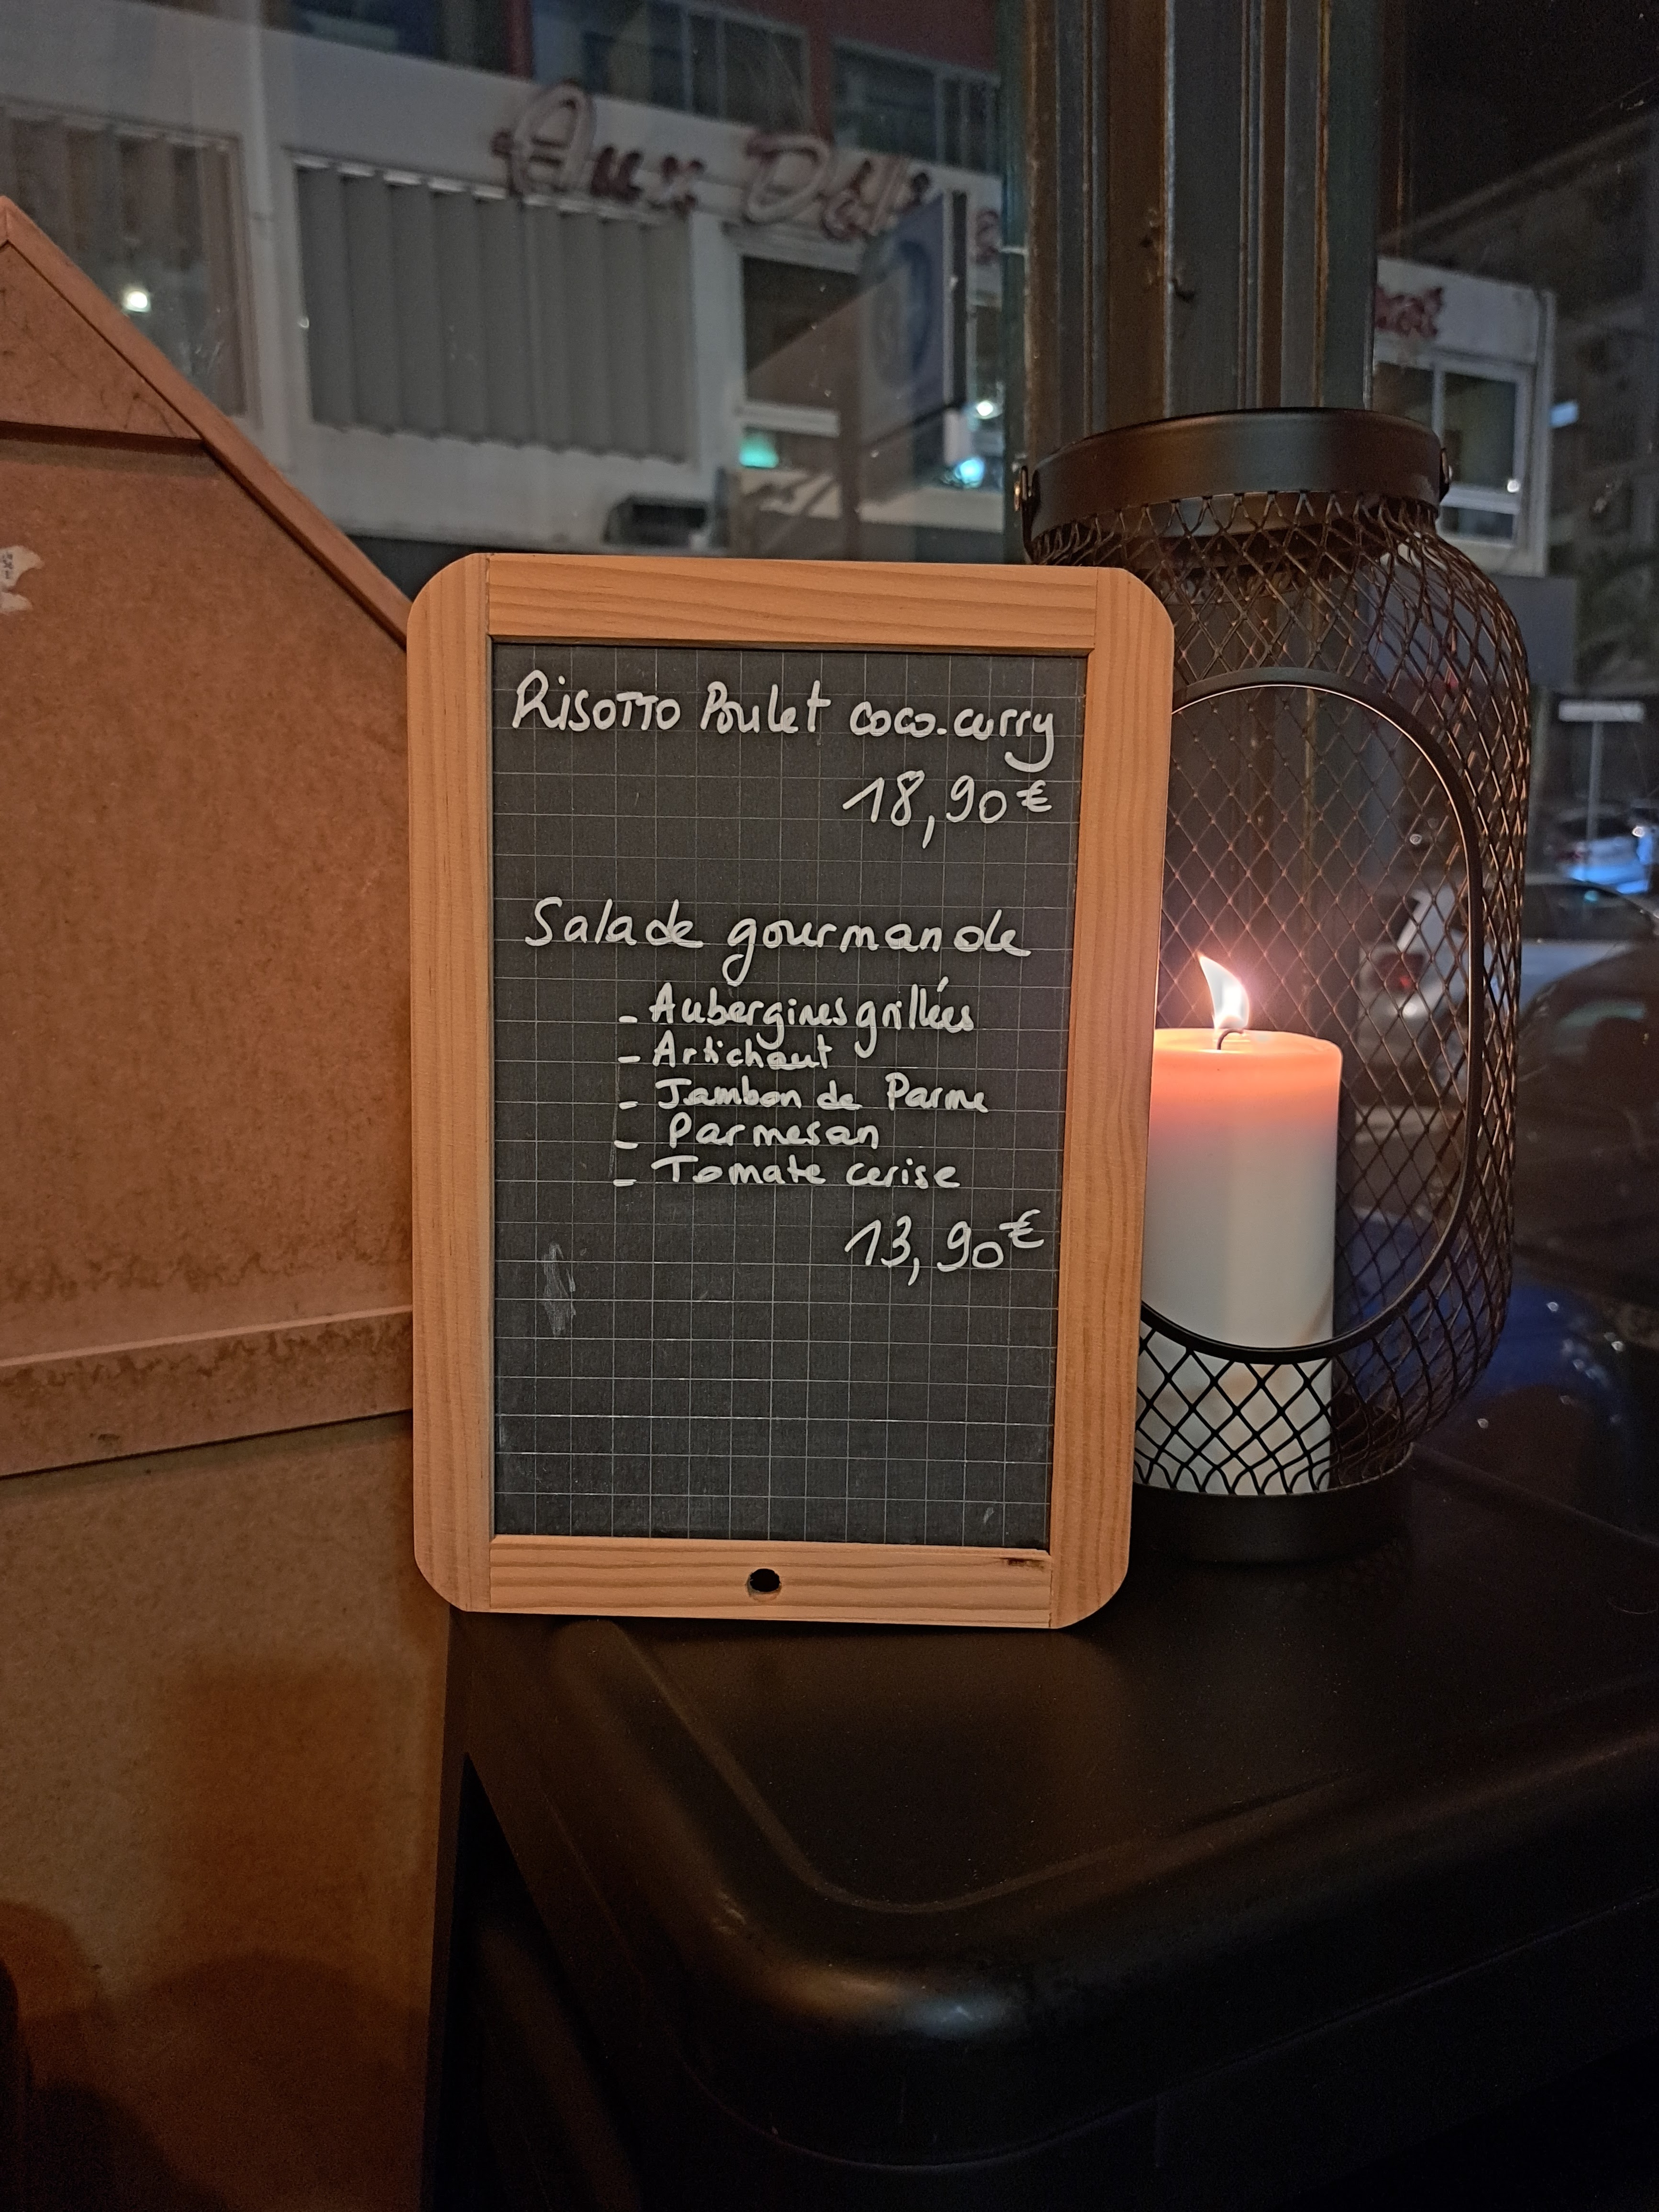 Aux Déli
RISOTTO Poulet coco-curry
18,90€
Salade gourmande
- Aubergines grillées
- Artichaut
- Jambon de Parme
- Parmesan
- Tomate cerise
13,90€